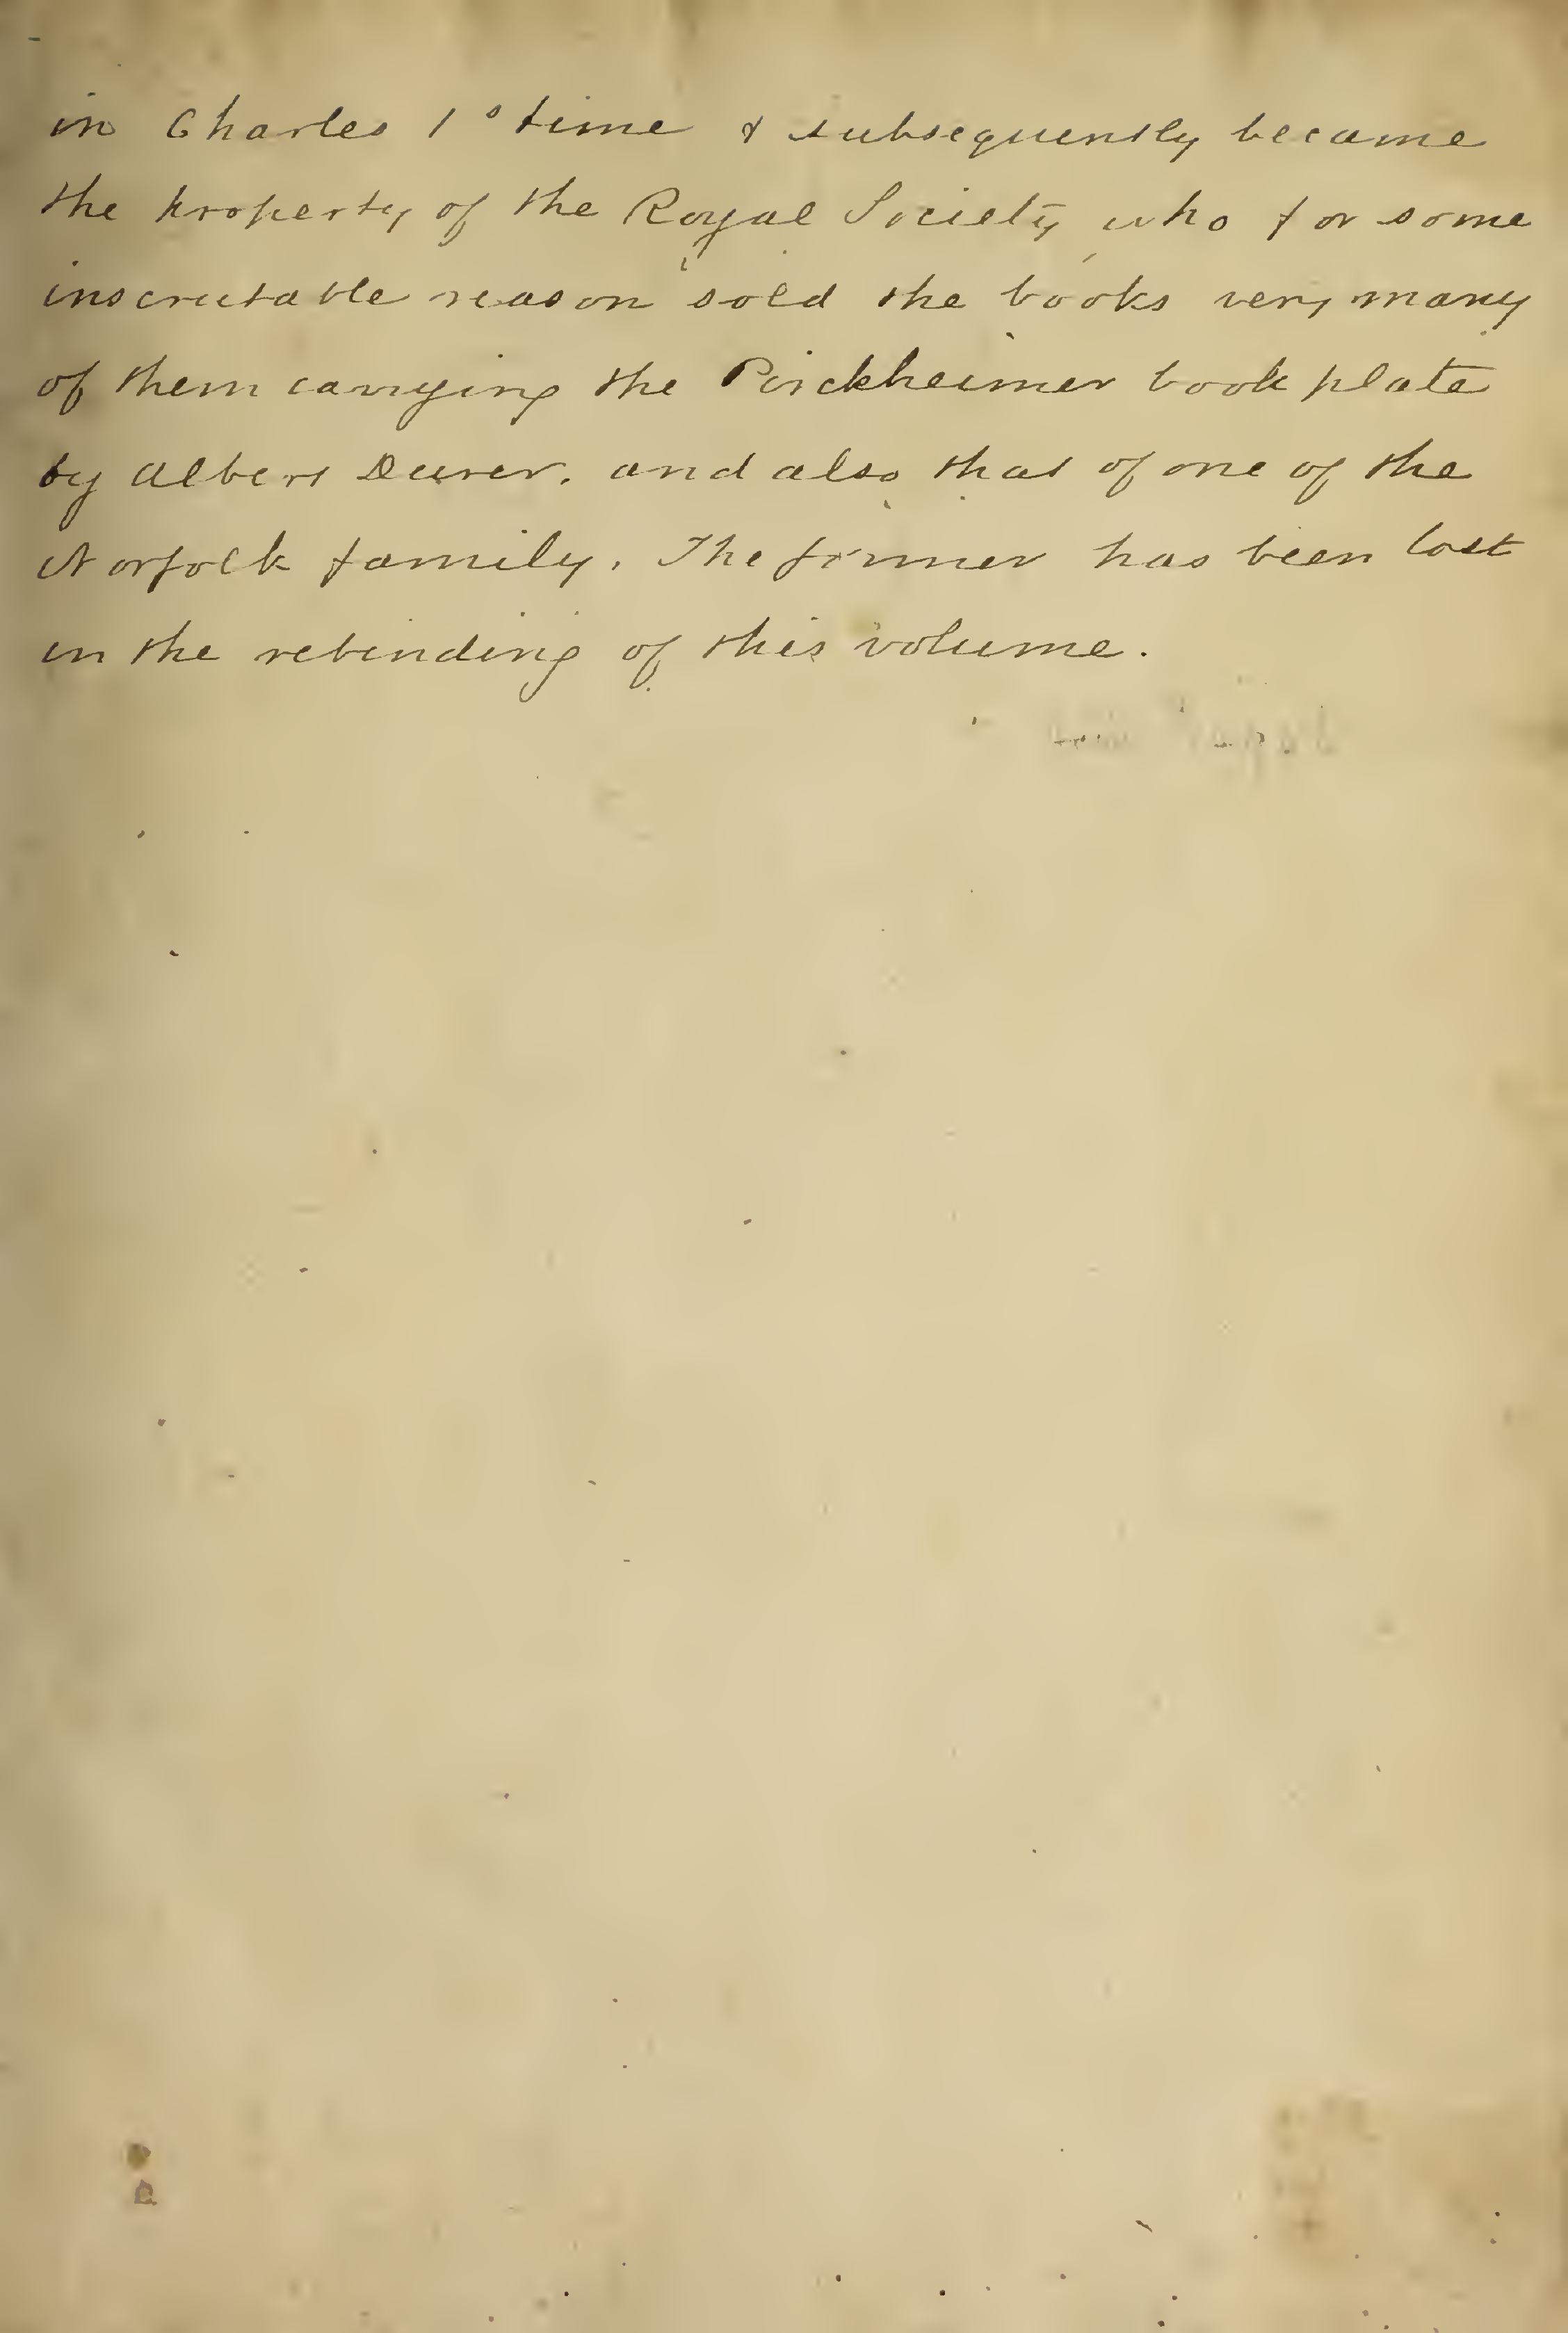 in Charles 1s time & subsequently became
the property of the Royal Society who for some
inscrutable reason sold the books very many
of them carrying the Pirckheimer book plate
by Albert Durer. and also that of one of the
Norfolk family. The former has been lost
in the rebinding of this volume.